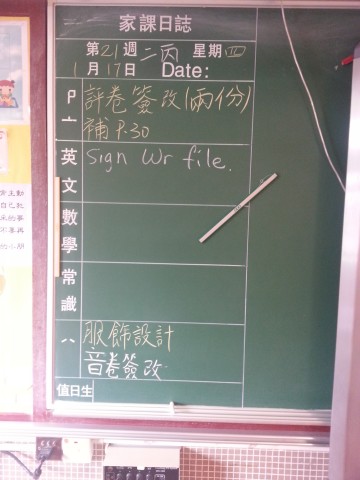 家課日誌
第21週 二丙 星期四
1月17日 Date:
評卷簽改(兩份)
補 P.30
英文 Sign Wr file.
數學
常識
服飾設計
音卷簽改
值日生